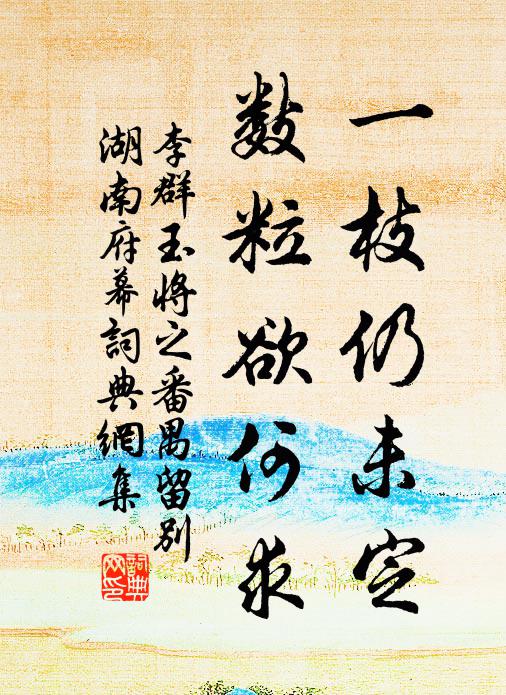 一枝仍未定
数粒欲何求
李群玉将之番禺留别
湖南府幕詞典網集
詞典
网印